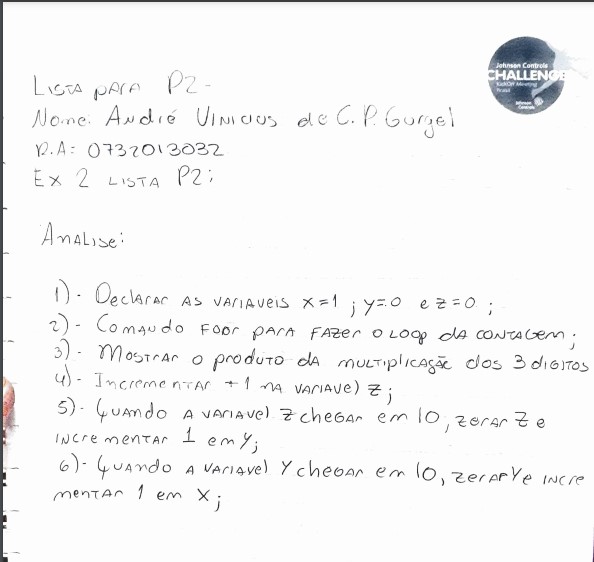 Johnson Controls
CHALLENGE
KickOff Meeting
Brasil
Johnson
Controls
Lista para P2-
Nome: André Vinicius de C. P. Gurgel
R.A: 0732013032
Ex 2 Lista P2;
Analise:
1)- Declarar as variaveis x=1 ; y=0 e z=0 ;
2)- Comando foor para fazer o loop da contagem;
3)- Mostrar o produto da multiplicação dos 3 digitos
4)- Incrementar +1 na variavel z;
5)- Quando a variavel z chegar em 10, zerar z e
incrementar 1 em y;
6)- Quando a variavel y chegar em 10, zerar y e incre
mentar 1 em x;